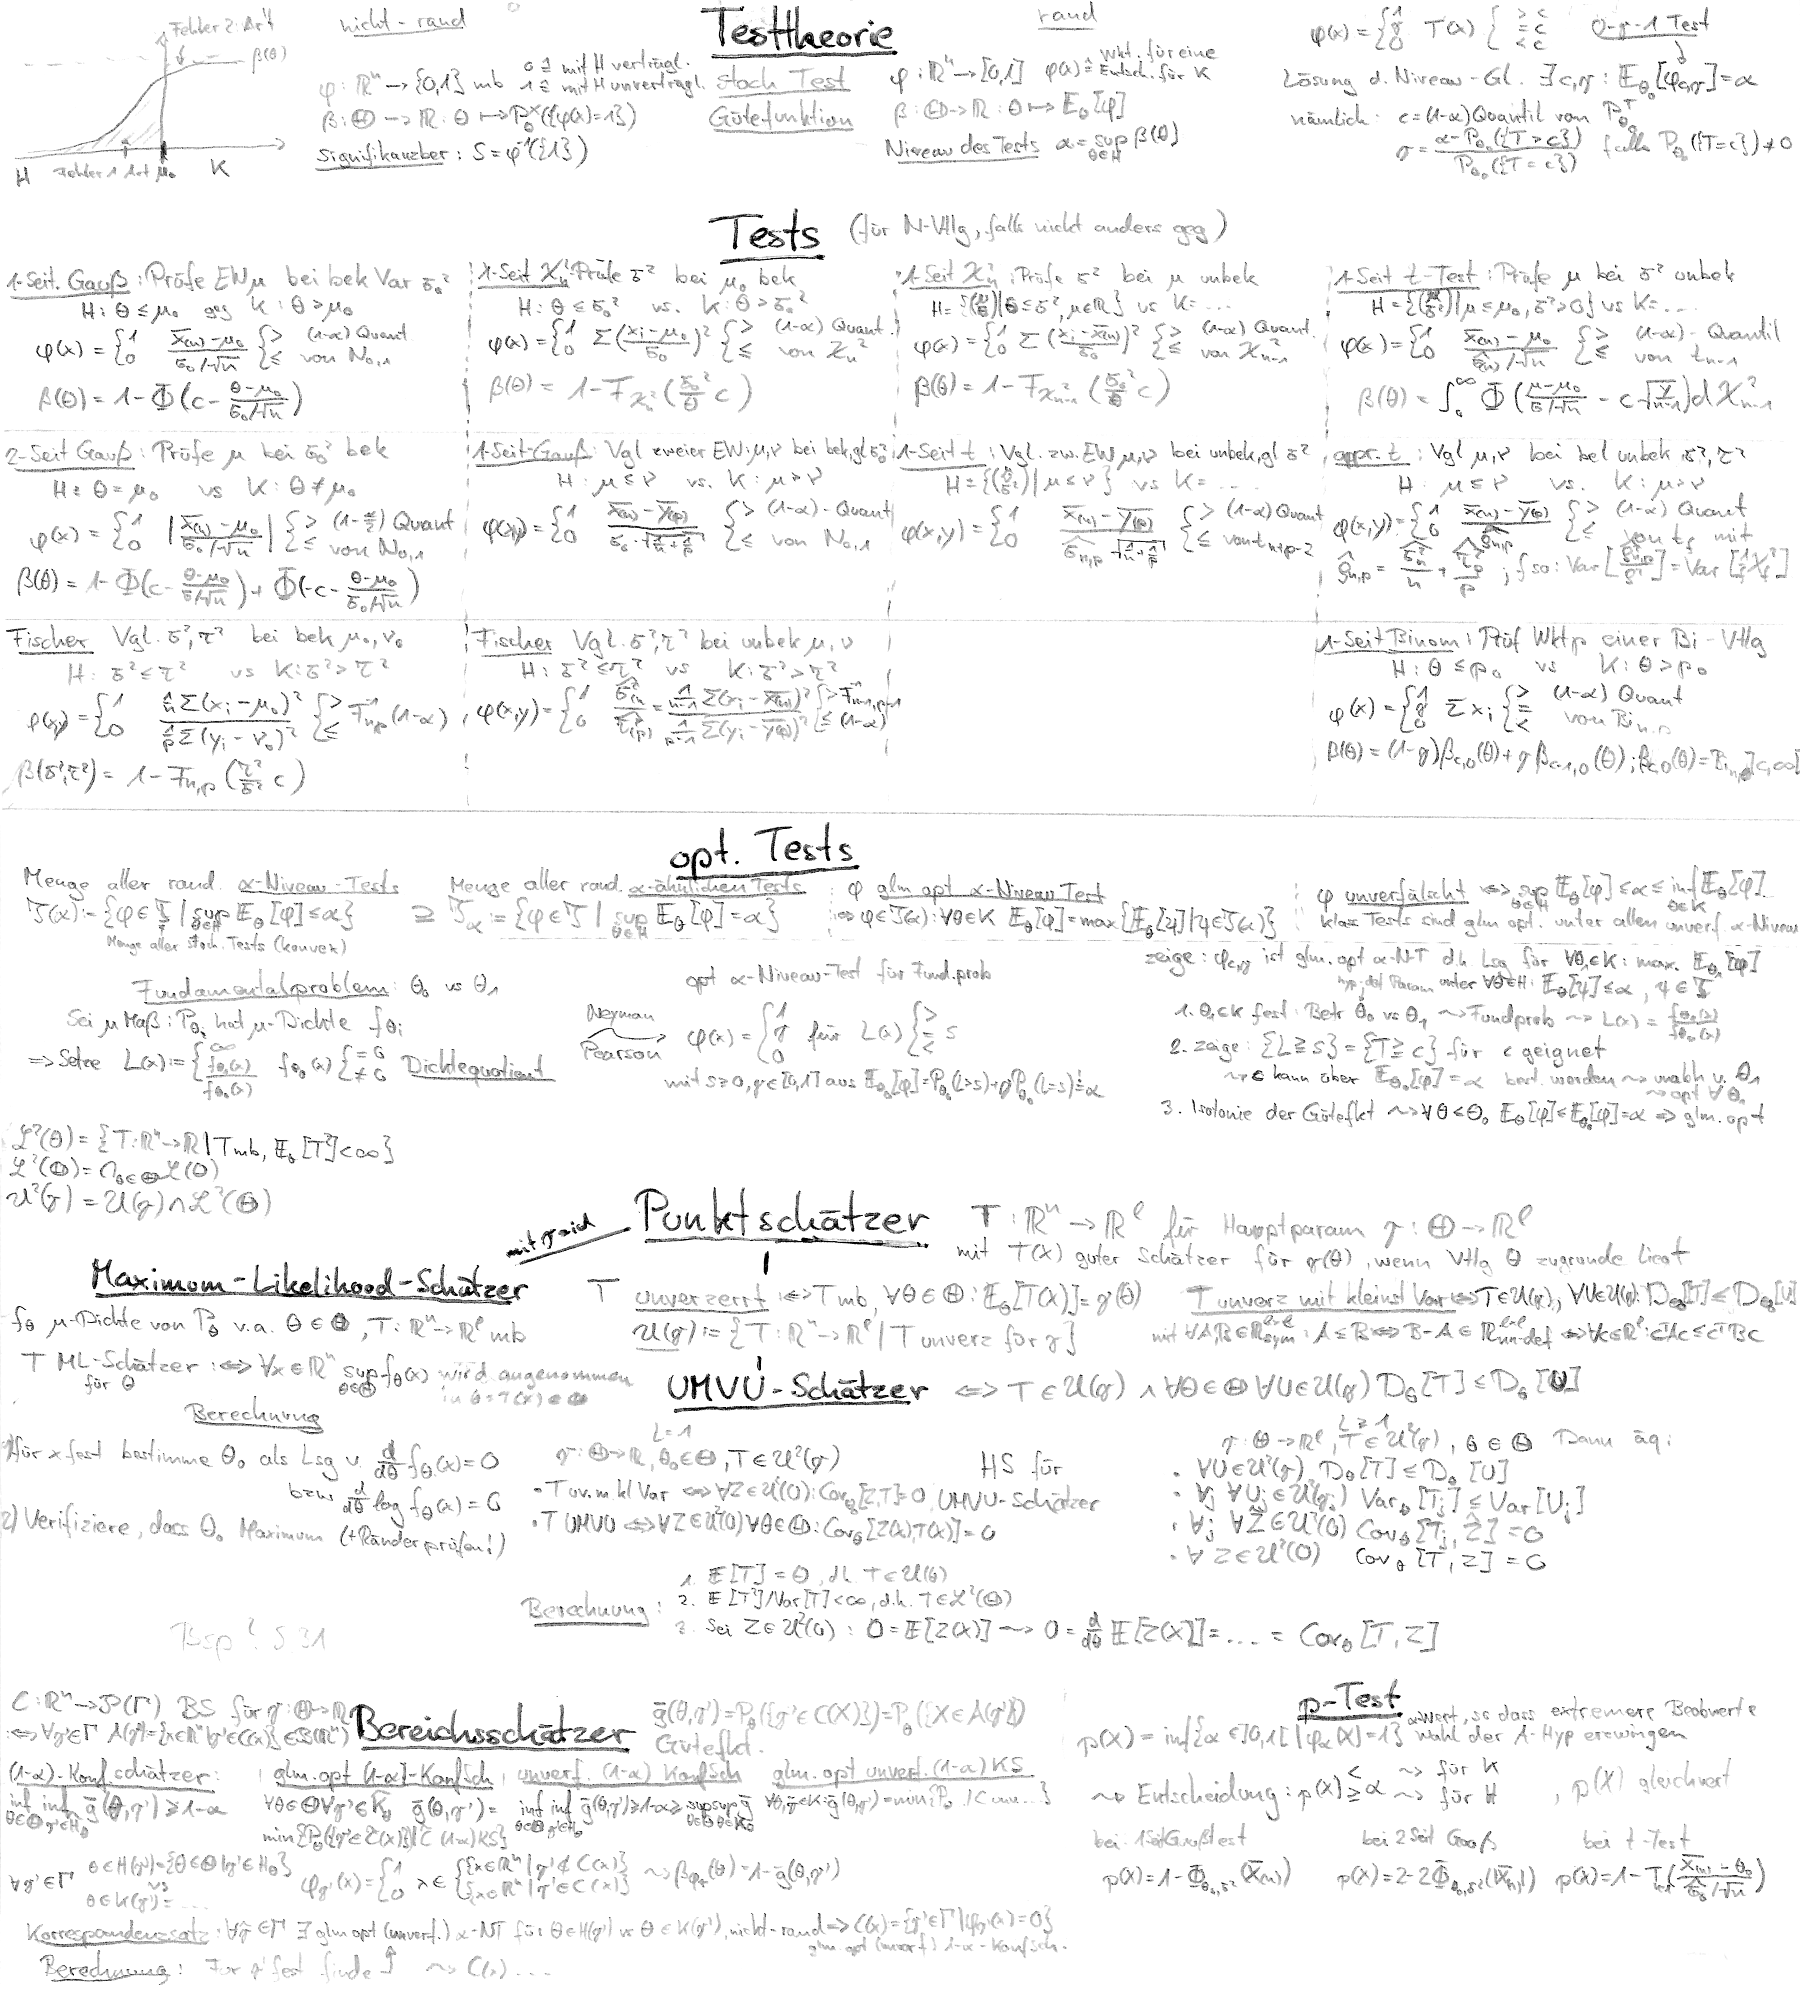 Testtheorie
Fehler 2. Art
β(θ)
H Fehler 1. Art μ₀ K
nicht-rand
φ: ℝⁿ → {0,1} mb 0 ≙ mit H verträgl. 1 ≙ mit H unverträgl.
β: Θ → ℝ: θ ↦ P_θ^X({φ(x)=1})
Signifikanzber: S = φ⁻¹({1})
stoch Test
Gütefunktion
rand
φ: ℝⁿ → [0,1] φ(x) ≙ Wkt. für eine Entsch. für K
β: Θ → ℝ: θ ↦ E_θ[φ]
Niveau des Tests α = sup_{θ∈H} β(θ)
φ(x) = {1 γ 0 T(x) {> c = c < c 0-γ-1 Test
Lösung d. Niveau-Gl. ∃ c,γ: E_θ₀[φ_{c,γ}] = α
nämlich: c = (1-α) Quantil von P_θ₀^T
γ = (α - P_θ₀({T > c})) / P_θ₀({T = c}) falls P_θ₀({T=c}) ≠ 0
Tests (für N-Vtlg, falls nicht anders geg)
1-Seit. Gauß: Prüfe EW μ bei bek Var σ₀²
H: θ ≤ μ₀ geg K: θ > μ₀
φ(x) = {1 0 (x̄₍ₙ₎ - μ₀)/(σ₀/√n) {> ≤ (1-α) Quant. von N₀,₁
β(θ) = 1 - Φ(c - (θ-μ₀)/(σ₀/√n))
1-Seit χ²ₙ: Prüfe σ² bei μ₀ bek
H: θ ≤ σ₀² vs. K: θ > σ₀²
φ(x) = {1 0 Σ((xᵢ-μ₀)/σ₀)² {> ≤ (1-α) Quant. von χ²ₙ
β(θ) = 1 - F_{χ²ₙ}(σ₀²/θ c)
1-Seit χ²ₙ: Prüfe σ² bei μ unbek
H = {(μ θ) | θ ≤ σ₀², μ∈ℝ} vs K = ...
φ(x) = {1 0 Σ((xᵢ - x̄₍ₙ₎)/σ₀)² {> ≤ (1-α) Quant. von χ²ₙ₋₁
β(θ) = 1 - F_{χ²ₙ₋₁}(σ₀²/θ c)
1-Seit t-Test: Prüfe μ bei σ² unbek
H = {(μ σ²) | μ ≤ μ₀, σ² > 0} vs K = ...
φ(x) = {1 0 (x̄₍ₙ₎ - μ₀)/(σ̂₍ₙ₎/√n) {> ≤ (1-α)-Quantil von tₙ₋₁
β(θ) = ∫₀^∞ Φ((μ-μ₀)/(σ/√n) - c√(y/(n-1))) dχ²ₙ₋₁
2-Seit Gauß: Prüfe μ bei σ₀² bek
H: θ = μ₀ vs K: θ ≠ μ₀
φ(x) = {1 0 |(x̄₍ₙ₎ - μ₀)/(σ₀/√n)| {> ≤ (1-α/2) Quant von N₀,₁
β(θ) = 1 - Φ(c - (θ-μ₀)/(σ₀/√n)) + Φ(-c - (θ-μ₀)/(σ₀/√n))
1-Seit-Gauß: Vgl zweier EW: μ,ν bei bek, gl σ₀²
H: μ ≤ ν vs. K: μ > ν
φ(x,y) = {1 0 (x̄₍ₙ₎ - ȳ₍ₚ₎)/(σ₀·√(1/n+1/p)) {> ≤ (1-α)-Quant von N₀,₁
1-Seit t: Vgl. zw. EW μ,ν bei unbek, gl σ²
H = {( ) | μ ≤ ν} vs K = ...
φ(x,y) = {1 0 (x̄₍ₙ₎ - ȳ₍ₚ₎)/(σ̂ₙ,ₚ √(1/n+1/p)) {> ≤ (1-α) Quant von tₙ₊ₚ₋₂
appr. t: Vgl μ,ν bei bel unbek σ², τ²
H: μ ≤ ν vs. K: μ > ν
φ(x,y) = {1 0 (x̄₍ₙ₎ - ȳ₍ₚ₎)/ρ̂ₙ,ₚ {> ≤ (1-α) Quant von t_f mit
ρ̂ₙ,ₚ = σ̂ₙ²/n + τ̂ₚ²/p ; f so: Var[ρ̂²ₙ,ₚ/ρ²] = Var[1/f χ²_f]
Fischer Vgl. σ², τ² bei bek μ₀, ν₀
H: σ² ≤ τ² vs K: σ² > τ²
φ(x,y) = {1 0 (1/n Σ(xᵢ-μ₀)²)/(1/p Σ(yᵢ-ν₀)²) {> ≤ F⁻¹ₙ,ₚ(1-α)
β(σ²,τ²) = 1 - Fₙ,ₚ(τ²/σ² c)
Fischer Vgl. σ², τ² bei unbek μ, ν
H: σ² ≤ τ² vs K: σ² > τ²
φ(x,y) = {1 0 σ̂²₍ₙ₎/τ̂²₍ₚ₎ = (1/(n-1) Σ(xᵢ - x̄₍ₙ₎)²)/(1/(p-1) Σ(yᵢ - ȳ₍ₚ₎)²) {> ≤ F⁻¹ₙ₋₁,ₚ₋₁ (1-α)
1-Seit Binom: Prüf Wkt p einer Bi-Vtlg
H: θ ≤ p₀ vs K: θ > p₀
φ(x) = {1 γ 0 Σxᵢ {> = < (1-α) Quant von Biₙ,ₚ
β(θ) = (1-γ)β_{c,0}(θ) + γ β_{c-1,0}(θ); β_{c,0}(θ) = Biₙ,θ]c,∞[
opt. Tests
Menge aller rand. α-Niveau-Tests
𝔍(α) := {φ∈𝔍 | sup_{θ∈H} E_θ[φ] ≤ α}
Menge aller stoch. Tests (konvex)
Menge aller rand. α-ähnlichen Tests
⊇ 𝔍_α := {φ∈𝔍 | sup_{θ∈H} E_θ[φ] = α}
φ glm opt α-Niveau Test
:⇔ φ∈𝔍(α): ∀θ∈K E_θ[φ] = max{E_θ[ψ] | ψ∈𝔍(α)}
φ unverfälscht :⇔ sup_{θ∈H} E_θ[φ] ≤ α ≤ inf_{θ∈K} E_θ[φ].
klass Tests sind glm opt. unter allen unverf. α-Niveau
Fundamentalproblem: θ₀ vs θ₁
Sei μ Maß: P_θᵢ hat μ-Dichte f_θᵢ
⇒ Setze L(x) := {∞ f_θ₁(x)/f_θ₀(x) f_θ₀(x) {= 0 ≠ 0 Dichtequotient
Neyman Pearson
opt α-Niveau-Test für Fund.prob
φ(x) = {1 γ 0 für L(x) {> = < s
mit s≥0, γ∈[0,1] aus E_θ₀[φ] = P_θ₀(L>s) + γP_θ₀(L=s) = α
zeige: φ_{c,γ} ist glm. opt α-NT d.h. Lsg für ∀θ₁∈K: max. E_θ₁[φ]
unter ∀θ∈H: E_θ[ψ] ≤ α, ψ∈𝔍
1. θ₁∈K fest: Betr θ₀ vs θ₁ ⇝ Fundprob ⇝ L(x) = f_θ₁(x)/f_θ₀(x)
2. zeige: {L ≧ s} = {T ≧ c} für c geignet
⇝ c kann über E_θ₀[φ] = α best. werden ⇝ unabh v. θ₁
⇝ opt ∀θ₁
3. Isotonie der Gütefkt ⇝ ∀θ<θ₀ E_θ[φ] ≤ E_θ₀[φ] = α ⇒ glm. opt
ℒ²(θ) = {T: ℝⁿ→ℝ | T mb, E_θ[T²] < ∞}
ℒ²(Θ) = ∩_{θ∈Θ} ℒ(θ)
𝒰²(γ) = 𝒰(γ) ∩ ℒ²(Θ)
Punktschätzer T: ℝⁿ → ℝˡ für Hauptparam γ: Θ → ℝˡ
mit T(x) guter Schätzer für γ(θ), wenn Vtlg θ zugrunde liegt
mit γ=id
Maximum-Likelihood-Schätzer
f_θ μ-Dichte von P_θ v.a. θ∈Θ, T: ℝⁿ→ℝˡ mb
T ML-Schätzer für θ :⇔ ∀x∈ℝⁿ sup_{θ∈Θ} f_θ(x) wird angenommen in θ=T(x)∈Θ
Berechnung
1) für x fest bestimme θ₀ als Lsg v. d/dθ f_θ(x) = 0
bzw d/dθ log f_θ(x) = 0
2) Verifiziere, dass θ₀ Maximum (+Ränder prüfen!)
Bsp! S 31
T unverzerrt :⇔ T mb, ∀θ∈Θ: E_θ[T(X)] = γ(θ)
𝒰(γ) := {T: ℝⁿ→ℝˡ | T unverz für γ}
T unverz mit kleinst Var :⇔ T∈𝒰(γ), ∀U∈𝒰(γ): D_θ₀[T] ≤ D_θ₀[U]
mit ∀A,B∈ℝˡˣˡ_sym: A ≤ B ⇔ B-A ∈ ℝˡˣˡ_nn-def ⇔ ∀c∈ℝˡ: cᵀAc ≤ cᵀBc
UMVU-Schätzer ⇔ T∈𝒰(γ) ∧ ∀θ∈Θ ∀U∈𝒰(γ) D_θ[T] ≤ D_θ[U]
l=1
γ: Θ→ℝ, θ₀∈Θ, T∈𝒰²(γ)
• T uv. m kl Var ⇔ ∀Z∈𝒰²(0): Cov_θ₀[Z,T] = 0
• T UMVU ⇔ ∀Z∈𝒰²(0) ∀θ∈Θ: Cov_θ[Z(X),T(X)] = 0
HS für UMVU-Schätzer
l ≥ 1
γ: Θ→ℝˡ, T∈𝒰²(γ), θ∈Θ Dann äq:
• ∀U∈𝒰²(γ) D_θ[T] ≤ D_θ[U]
• ∀j ∀Uⱼ∈𝒰²(γⱼ) Var_θ[Tⱼ] ≤ Var[Uⱼ]
• ∀j ∀Ẑ∈𝒰²(0) Cov_θ[Tⱼ, Ẑ] = 0
• ∀Z∈𝒰²(0) Cov_θ[T,Z] = 0
Berechnung:
1. E[T] = θ, d.h. T∈𝒰(θ)
2. E[T²]/Var[T] < ∞, d.h. T∈ℒ²(Θ)
3. Sei Z∈𝒰²(0): 0 = E[Z(X)] ⇝ 0 = d/dθ E[Z(X)] = ... = Cov_θ[T,Z]
C: ℝⁿ→𝒫(Γ) BS für γ: Θ→ℝ
:⇔ ∀γ'∈Γ A(γ') = {x∈ℝⁿ | γ'∈C(x)} ∈ 𝔅(ℝⁿ)
Bereichsschätzer
ḡ(θ,γ') = P_θ({γ'∈C(X)}) = P_θ({X∈A(γ')})
Gütefkt.
(1-α)-Konf.schätzer:
inf_{θ∈Θ} inf_{γ'∈H_θ} ḡ(θ,γ') ≥ 1-α
glm. opt (1-α)-KonfSch
∀θ∈Θ ∀γ'∈K_θ ḡ(θ,γ') = min{P_θ({γ'∈C̃(X)}) | C̃ (1-α) KS}
unverf. (1-α) KonfSch
inf_{θ∈Θ} inf_{γ'∈H_θ} ḡ(θ,γ') ≥ 1-α ≥ sup_{θ∈Θ} sup_{γ'∈K_θ} ḡ
glm. opt unverf. (1-α) KS
∀θ, γ'∈K: ḡ(θ,γ') = min{P_θ ... | C unv...}
∀γ'∈Γ θ∈H(γ') = {θ∈Θ | γ'∈H_θ}
vs
θ∈K(γ') = ...
φ_γ'(x) = {1 0 x∈ {{x∈ℝⁿ | γ'∉C(x)} {x∈ℝⁿ | γ'∈C(x)} ⇝ β_φγ'(θ) = 1-ḡ(θ,γ')
Korrespondenzsatz: ∀γ'∈Γ ∃ glm opt (unverf.) α-NT für θ∈H(γ') vs θ∈K(γ'), nicht-rand ⇒ C(x) = {γ'∈Γ | φ_γ'(x) = 0}
glm. opt (unverf) 1-α-Konfsch.
Berechnung: Für γ' fest finde ↑ ⇝ C(x) ...
p-Test
p(X) = inf{α∈]0,1[ | φ_α(X) = 1} α-Wert, so dass extremere Beobwerte Wahl der 1-Hyp erzwingen
⇝ Entscheidung: p(X) < ≥ α ⇝ für K ⇝ für H , p(X) gleichvert
bei 1Seit Gaußtest
p(X) = 1 - Φ_θ₀,σ²(X̄₍ₙ₎)
bei 2Seit Gauß
p(X) = 2 - 2Φ_θ₀,σ²(|X̄₍ₙ₎|)
bei t-Test
p(X) = 1 - T((X̄₍ₙ₎ - θ₀)/(σ̂/√n))